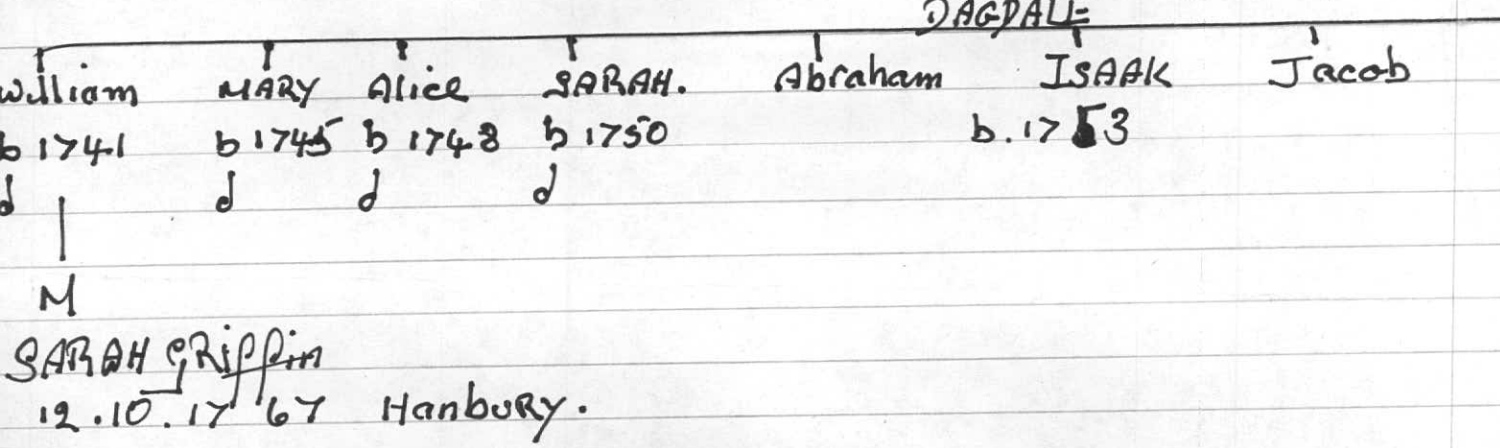 DAGDALE
William MARY Alice SARAH. Abraham ISAAK Jacob
b 1741 b 1745 b 1748 b 1750 b. 1753
d d d d
M
SARAH GRiffin
12.10.1767 HanbuRY.